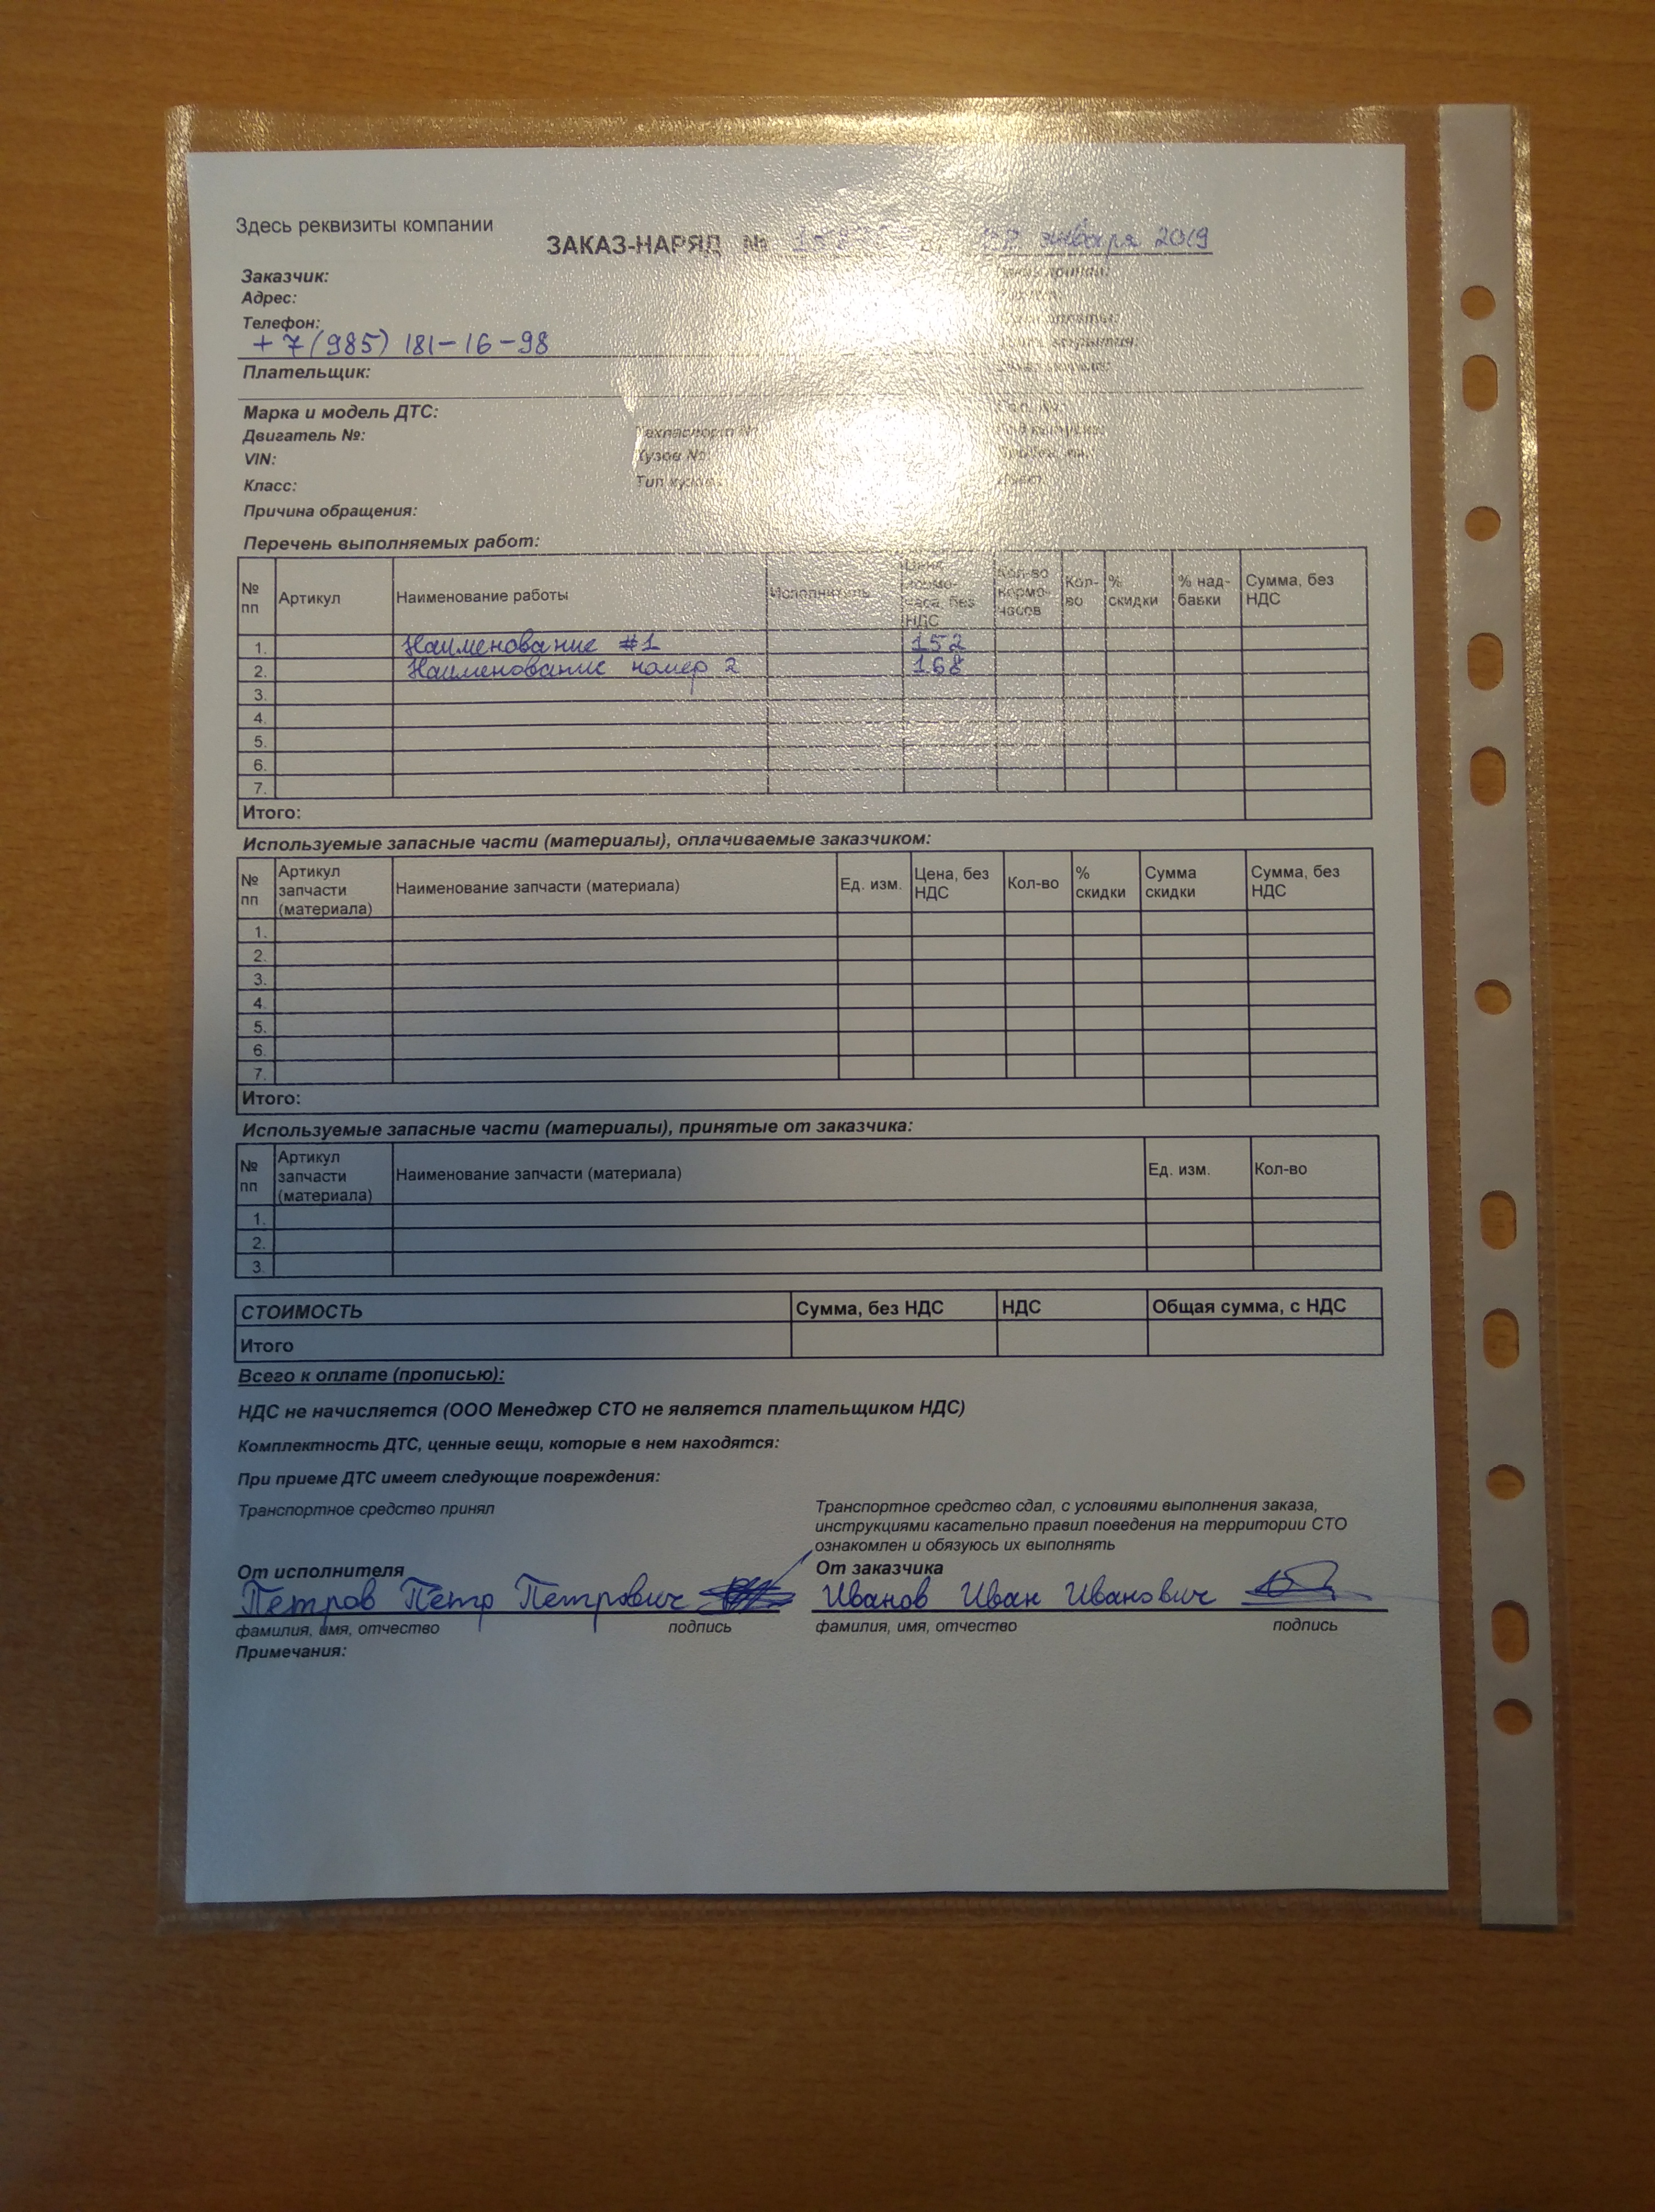 Здесь реквизиты компании
ЗАКАЗ-НАРЯД № января 2019
Заказчик:
Адрес:
Телефон:
+7(985) 181-16-98
Плательщик:
Марка и модель ДТС:
Двигатель №: Техпаспорт №
VIN: Кузов №:
Класс: Тип кузова:
Причина обращения:
Перечень выполняемых работ:
№ пп Артикул Наименование работы Исполнитель Цена нормо-часа, без НДС Кол-во нормо-часов Кол-во % скидки % над-бавки Сумма, без НДС
1. Наименование #1 152
2. Наименование номер 2 168
3.
4.
5.
6.
7.
Итого:
Используемые запасные части (материалы), оплачиваемые заказчиком:
№ пп Артикул запчасти (материала) Наименование запчасти (материала) Ед. изм. Цена, без НДС Кол-во % скидки Сумма скидки Сумма, без НДС
1.
2.
3.
4.
5.
6.
7.
Итого:
Используемые запасные части (материалы), принятые от заказчика:
№ пп Артикул запчасти (материала) Наименование запчасти (материала) Ед. изм. Кол-во
1.
2.
3.
СТОИМОСТЬ Сумма, без НДС НДС Общая сумма, с НДС
Итого
Всего к оплате (прописью):
НДС не начисляется (ООО Менеджер СТО не является плательщиком НДС)
Комплектность ДТС, ценные вещи, которые в нем находятся:
При приеме ДТС имеет следующие повреждения:
Транспортное средство принял
Транспортное средство сдал, с условиями выполнения заказа,
инструкциями касательно правил поведения на территории СТО
ознакомлен и обязуюсь их выполнять
От исполнителя От заказчика
Петров Пётр Петрович Иванов Иван Иванович
фамилия, имя, отчество подпись фамилия, имя, отчество подпись
Примечания: